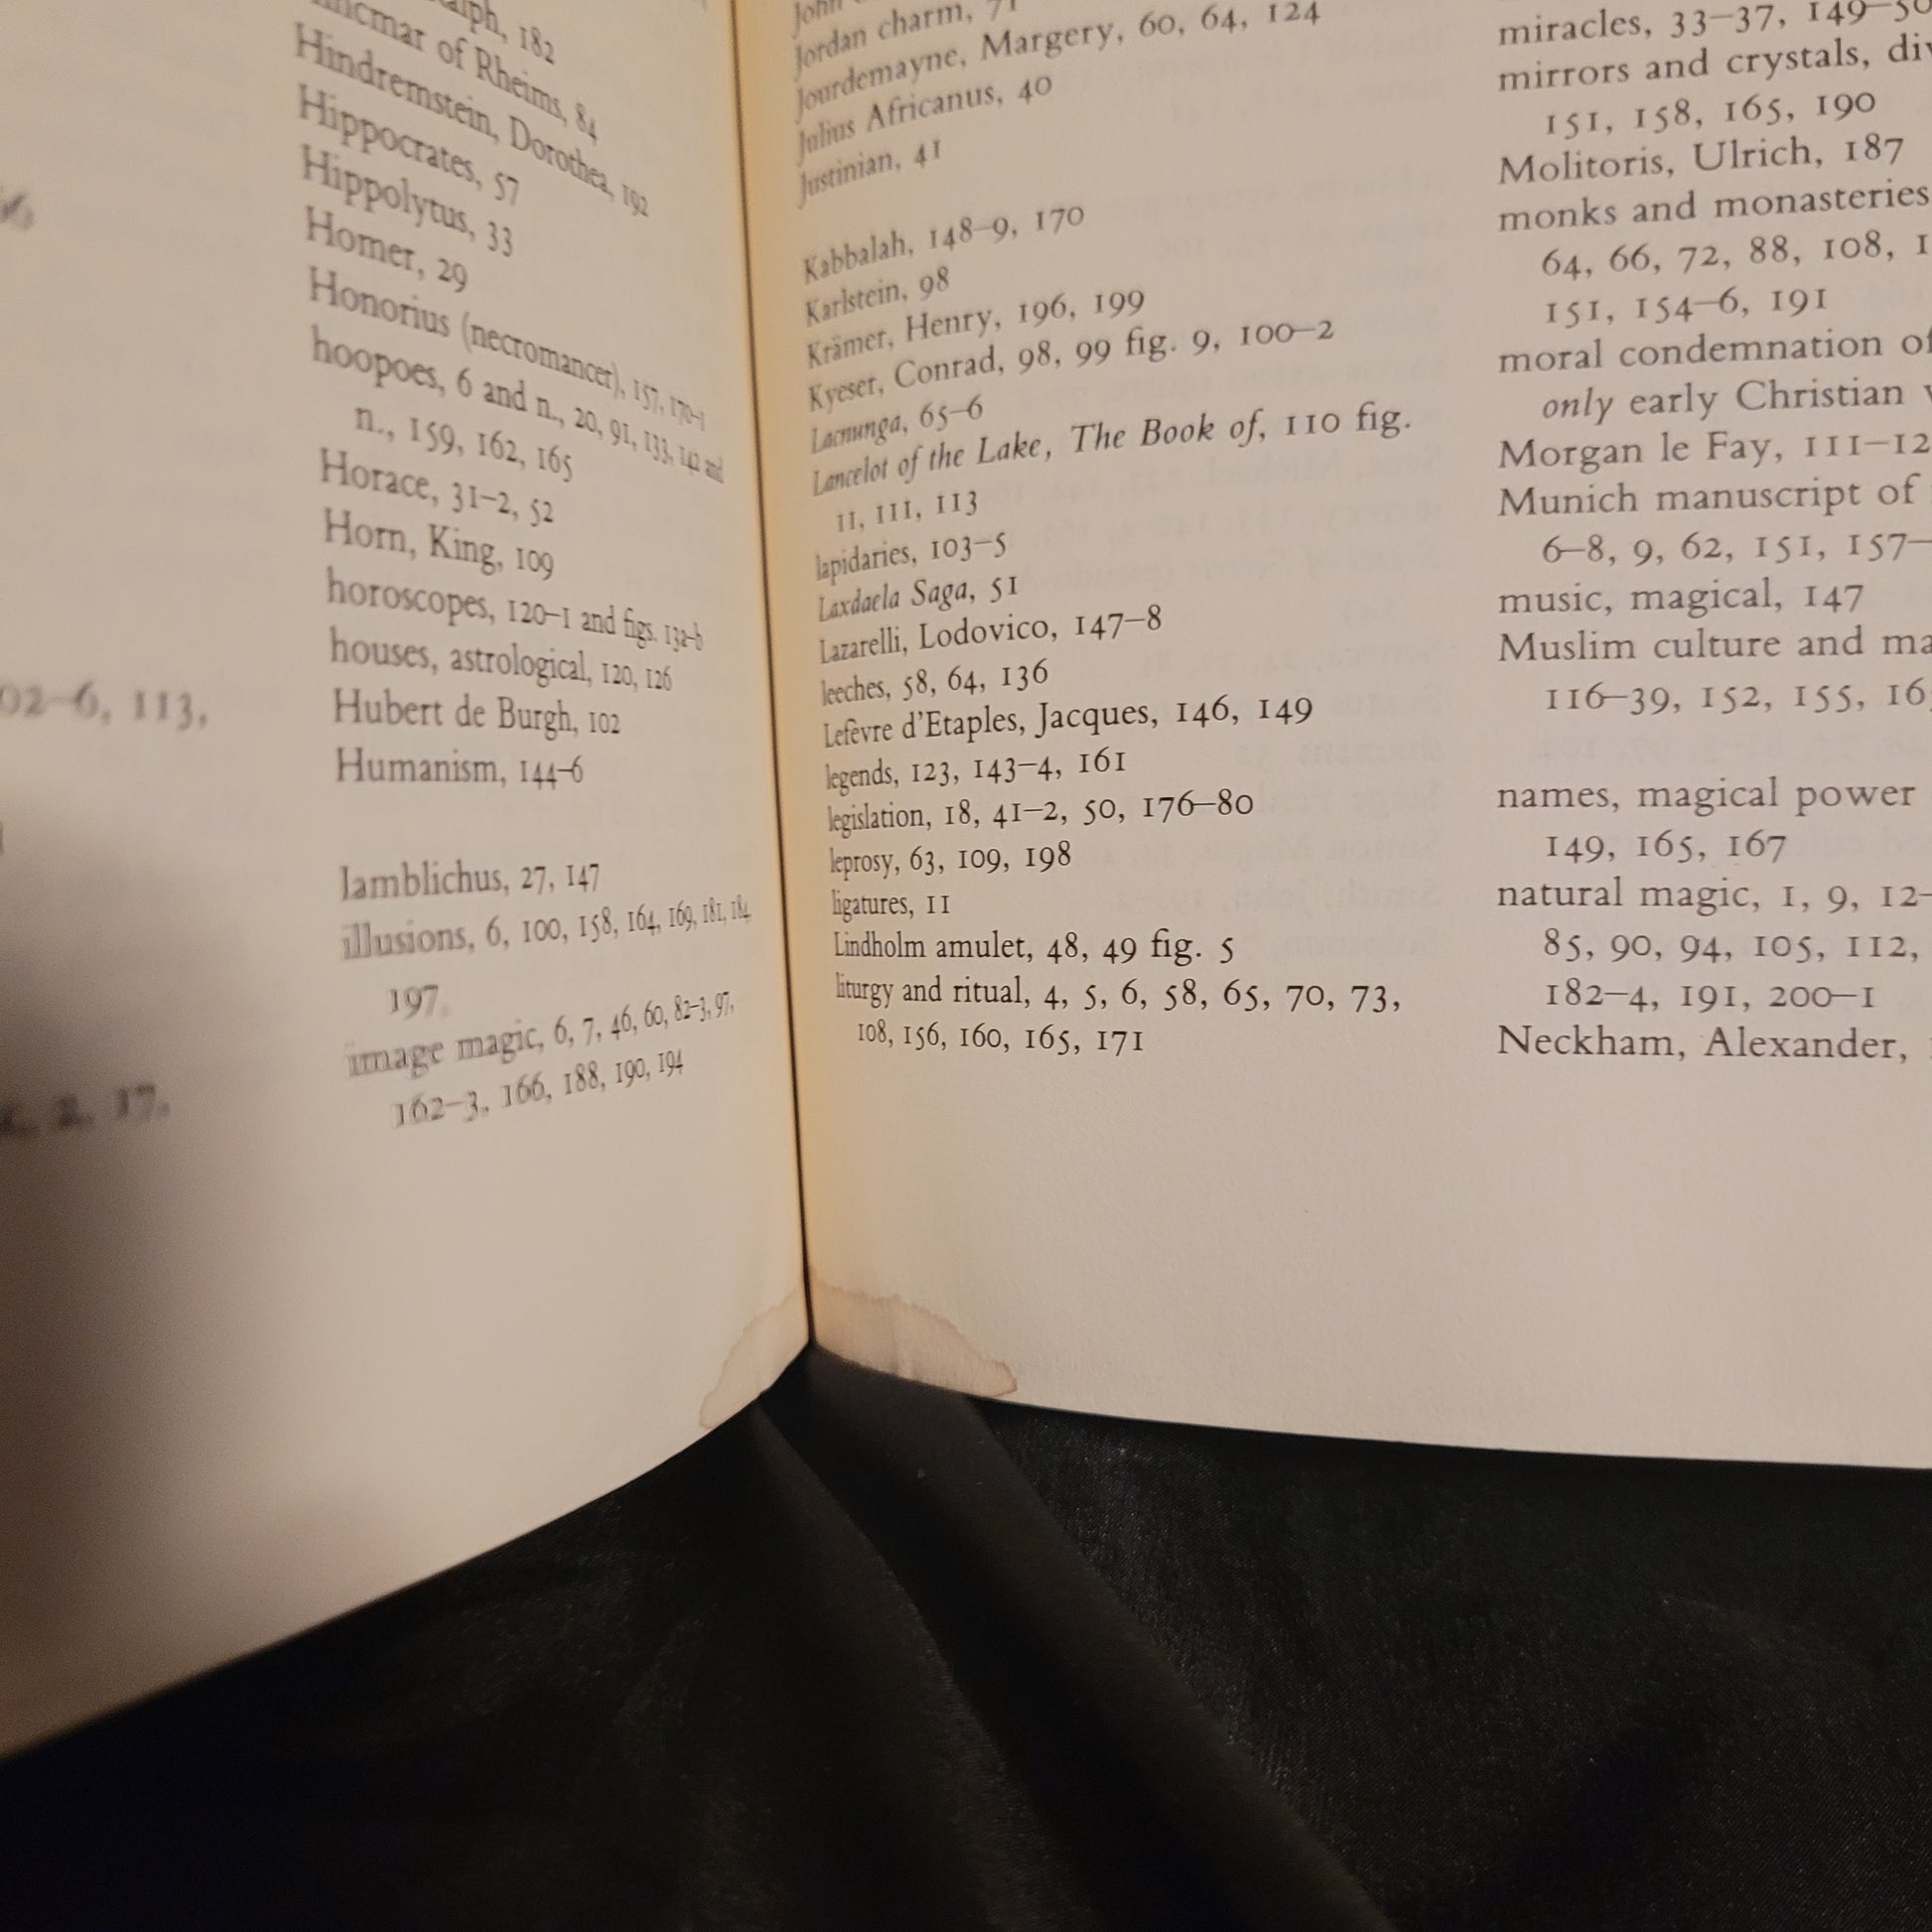 02–6, 113,
2, 17,
182
of Rheims, 84
Hindremstein, Dorothea, 192
Hippocrates, 57
Hippolytus, 33
Homer, 29
Honorius (necromancer), 157, 170–1
hoopoes, 6 and n., 20, 91, 133, 142 and
n., 159, 162, 165
Horace, 31–2, 52
Horn, King, 109
horoscopes, 120–1 and figs. 13a–b
houses, astrological, 120, 126
Hubert de Burgh, 102
Humanism, 144–6
Iamblichus, 27, 147
illusions, 6, 100, 158, 164, 169, 181, 184,
197
image magic, 6, 7, 46, 60, 82–3, 97,
162–3, 166, 188, 190, 194
John
Jordan charm, 71
Jourdemayne, Margery, 60, 64, 124
Julius Africanus, 40
Justinian, 41
Kabbalah, 148–9, 170
Karlstein, 98
Krämer, Henry, 196, 199
Kyeser, Conrad, 98, 99 fig. 9, 100–2
Lacnunga, 65–6
Lancelot of the Lake, The Book of, 110 fig.
11, 111, 113
lapidaries, 103–5
Laxdaela Saga, 51
Lazarelli, Lodovico, 147–8
leeches, 58, 64, 136
Lefèvre d'Etaples, Jacques, 146, 149
legends, 123, 143–4, 161
legislation, 18, 41–2, 50, 176–80
leprosy, 63, 109, 198
ligatures, 11
Lindholm amulet, 48, 49 fig. 5
liturgy and ritual, 4, 5, 6, 58, 65, 70, 73,
108, 156, 160, 165, 171
miracles, 33–37, 149–50
mirrors and crystals, div
151, 158, 165, 190
Molitoris, Ulrich, 187
monks and monasteries
64, 66, 72, 88, 108, 1
151, 154–6, 191
moral condemnation of
only early Christian
Morgan le Fay, 111–12
Munich manuscript of
6–8, 9, 62, 151, 157–
music, magical, 147
Muslim culture and ma
116–39, 152, 155, 16
names, magical power
149, 165, 167
natural magic, 1, 9, 12–
85, 90, 94, 105, 112,
182–4, 191, 200–1
Neckham, Alexander,